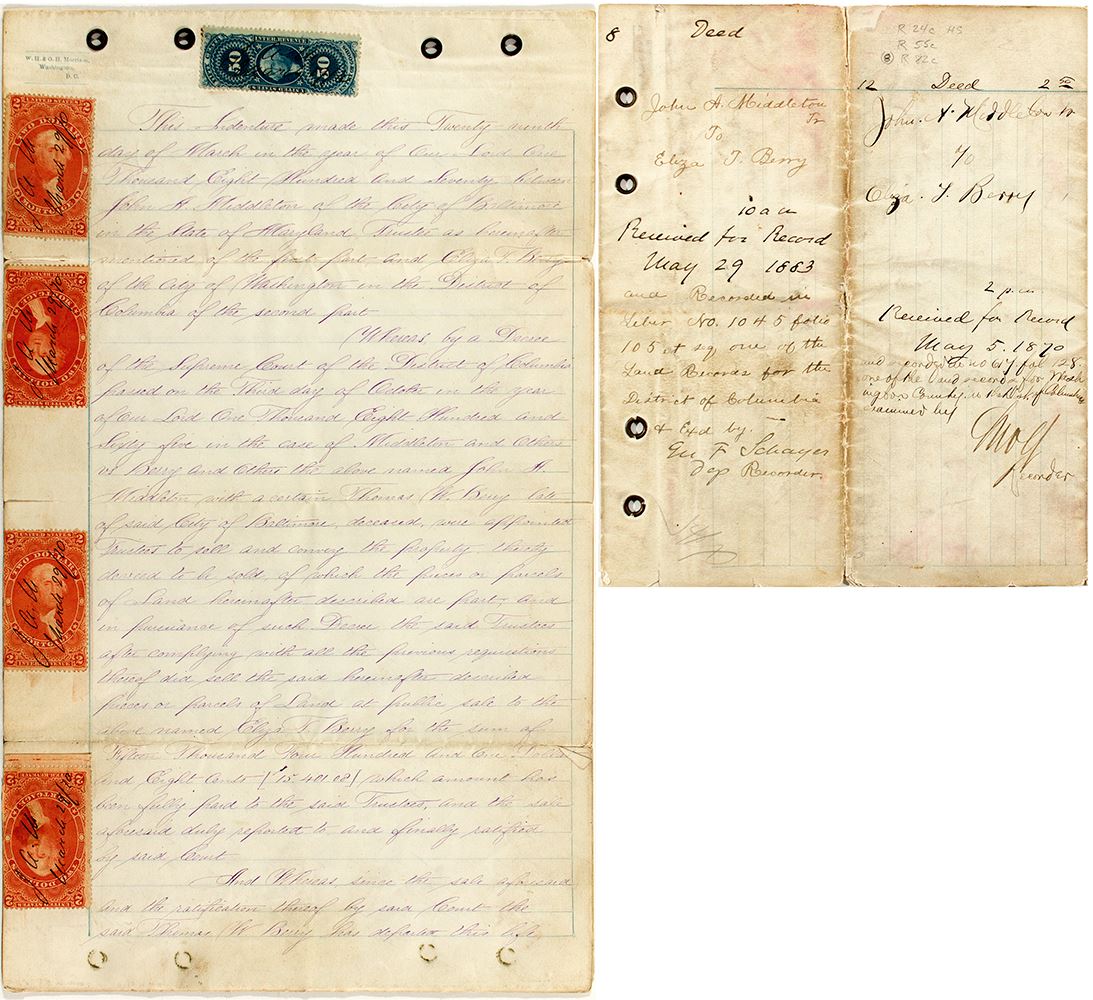 W. H. & O. H. Morrison,
Washington,
D. C.
INTER. REVENUE
50 50
UNITED STATES
This Indenture made this Twenty ninth
day of March in the year of Our Lord One
Thousand Eight Hundred and Seventy between
John A. Middleton of the City of Baltimore
in the State of Maryland Trustee as hereinafter
mentioned of the first part and Eliza T. Berry
of the City of Washington in the District of
Columbia of the second part
Whereas, by a Decree
of the Supreme Court of the District of Columbia
passed on the Third day of October in the year
of our Lord One Thousand Eight Hundred and
Sixty five in the case of Middleton and Others
vs Berry and Others the above named John A.
Middleton with a certain Thomas W. Berry late
of said City of Baltimore, deceased, were appointed
Trustees to sell and convey the property thereby
decreed to be sold, of which the pieces or parcels
of Land hereinafter described are part, and
in pursuance of such Decree the said Trustees
after complying with all the previous requisitions
thereof did sell the said hereinafter described
pieces or parcels of Land at public sale to the
above named Eliza T. Berry for the sum of
Fifteen Thousand Four Hundred and One Dollars
and Eight Cents [$15 401.08] which amount has
been fully paid to the said Trustees, and the sale
aforesaid duly reported to and finally ratified
by said Court
And Whereas since the sale aforesaid
and the ratification thereof by said Court the
said Thomas W Berry has departed this life
UNITED STATES
TWO DOLLARS
MORTGAGE
INTER. REVENUE
March 29/70
UNITED STATES
TWO DOLLARS
MORTGAGE
March 29/70
UNITED STATES
TWO DOLLARS
MORTGAGE
INTER. REVENUE
March 29/70
UNITED STATES
TWO DOLLARS
MORTGAGE
March 29/70
8 Deed
John A. Middleton
Tr
To
Eliza T. Berry
10 a m
Received for Record
May 29 1883
and Recorded in
Liber No. 1045 folio
105 et sq one of the
Land Records for the
District of Columbia
& Exd by
Geo F Schayer
Dep Recorder.
R 24c HS
R 55c
R 82c
12 Deed 2 50
John. A. Middleton Tr
To
Eliza. T. Berry
2 p.m.
Received for Record
May 5. 1870
and recorded in no 617 fol 128.
one of the Land records for Wash
ington County in District of Columbia
Examined by
Recorder